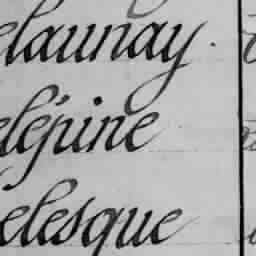 elaunay.
elépine
elesque